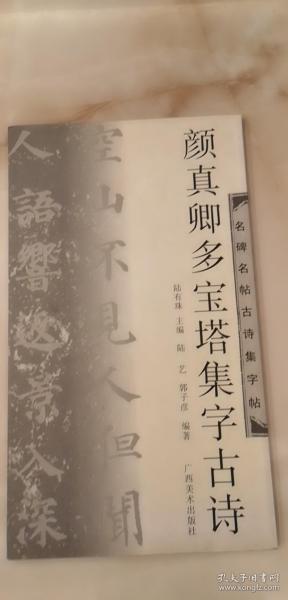 颜真卿多宝塔集字古诗
名碑名帖古诗集字帖
陆有珠 主编 陆 艺 郭子彦 编著
广西美术出版社
空山不见人但聞
人語響返景入深
孔夫子旧书网